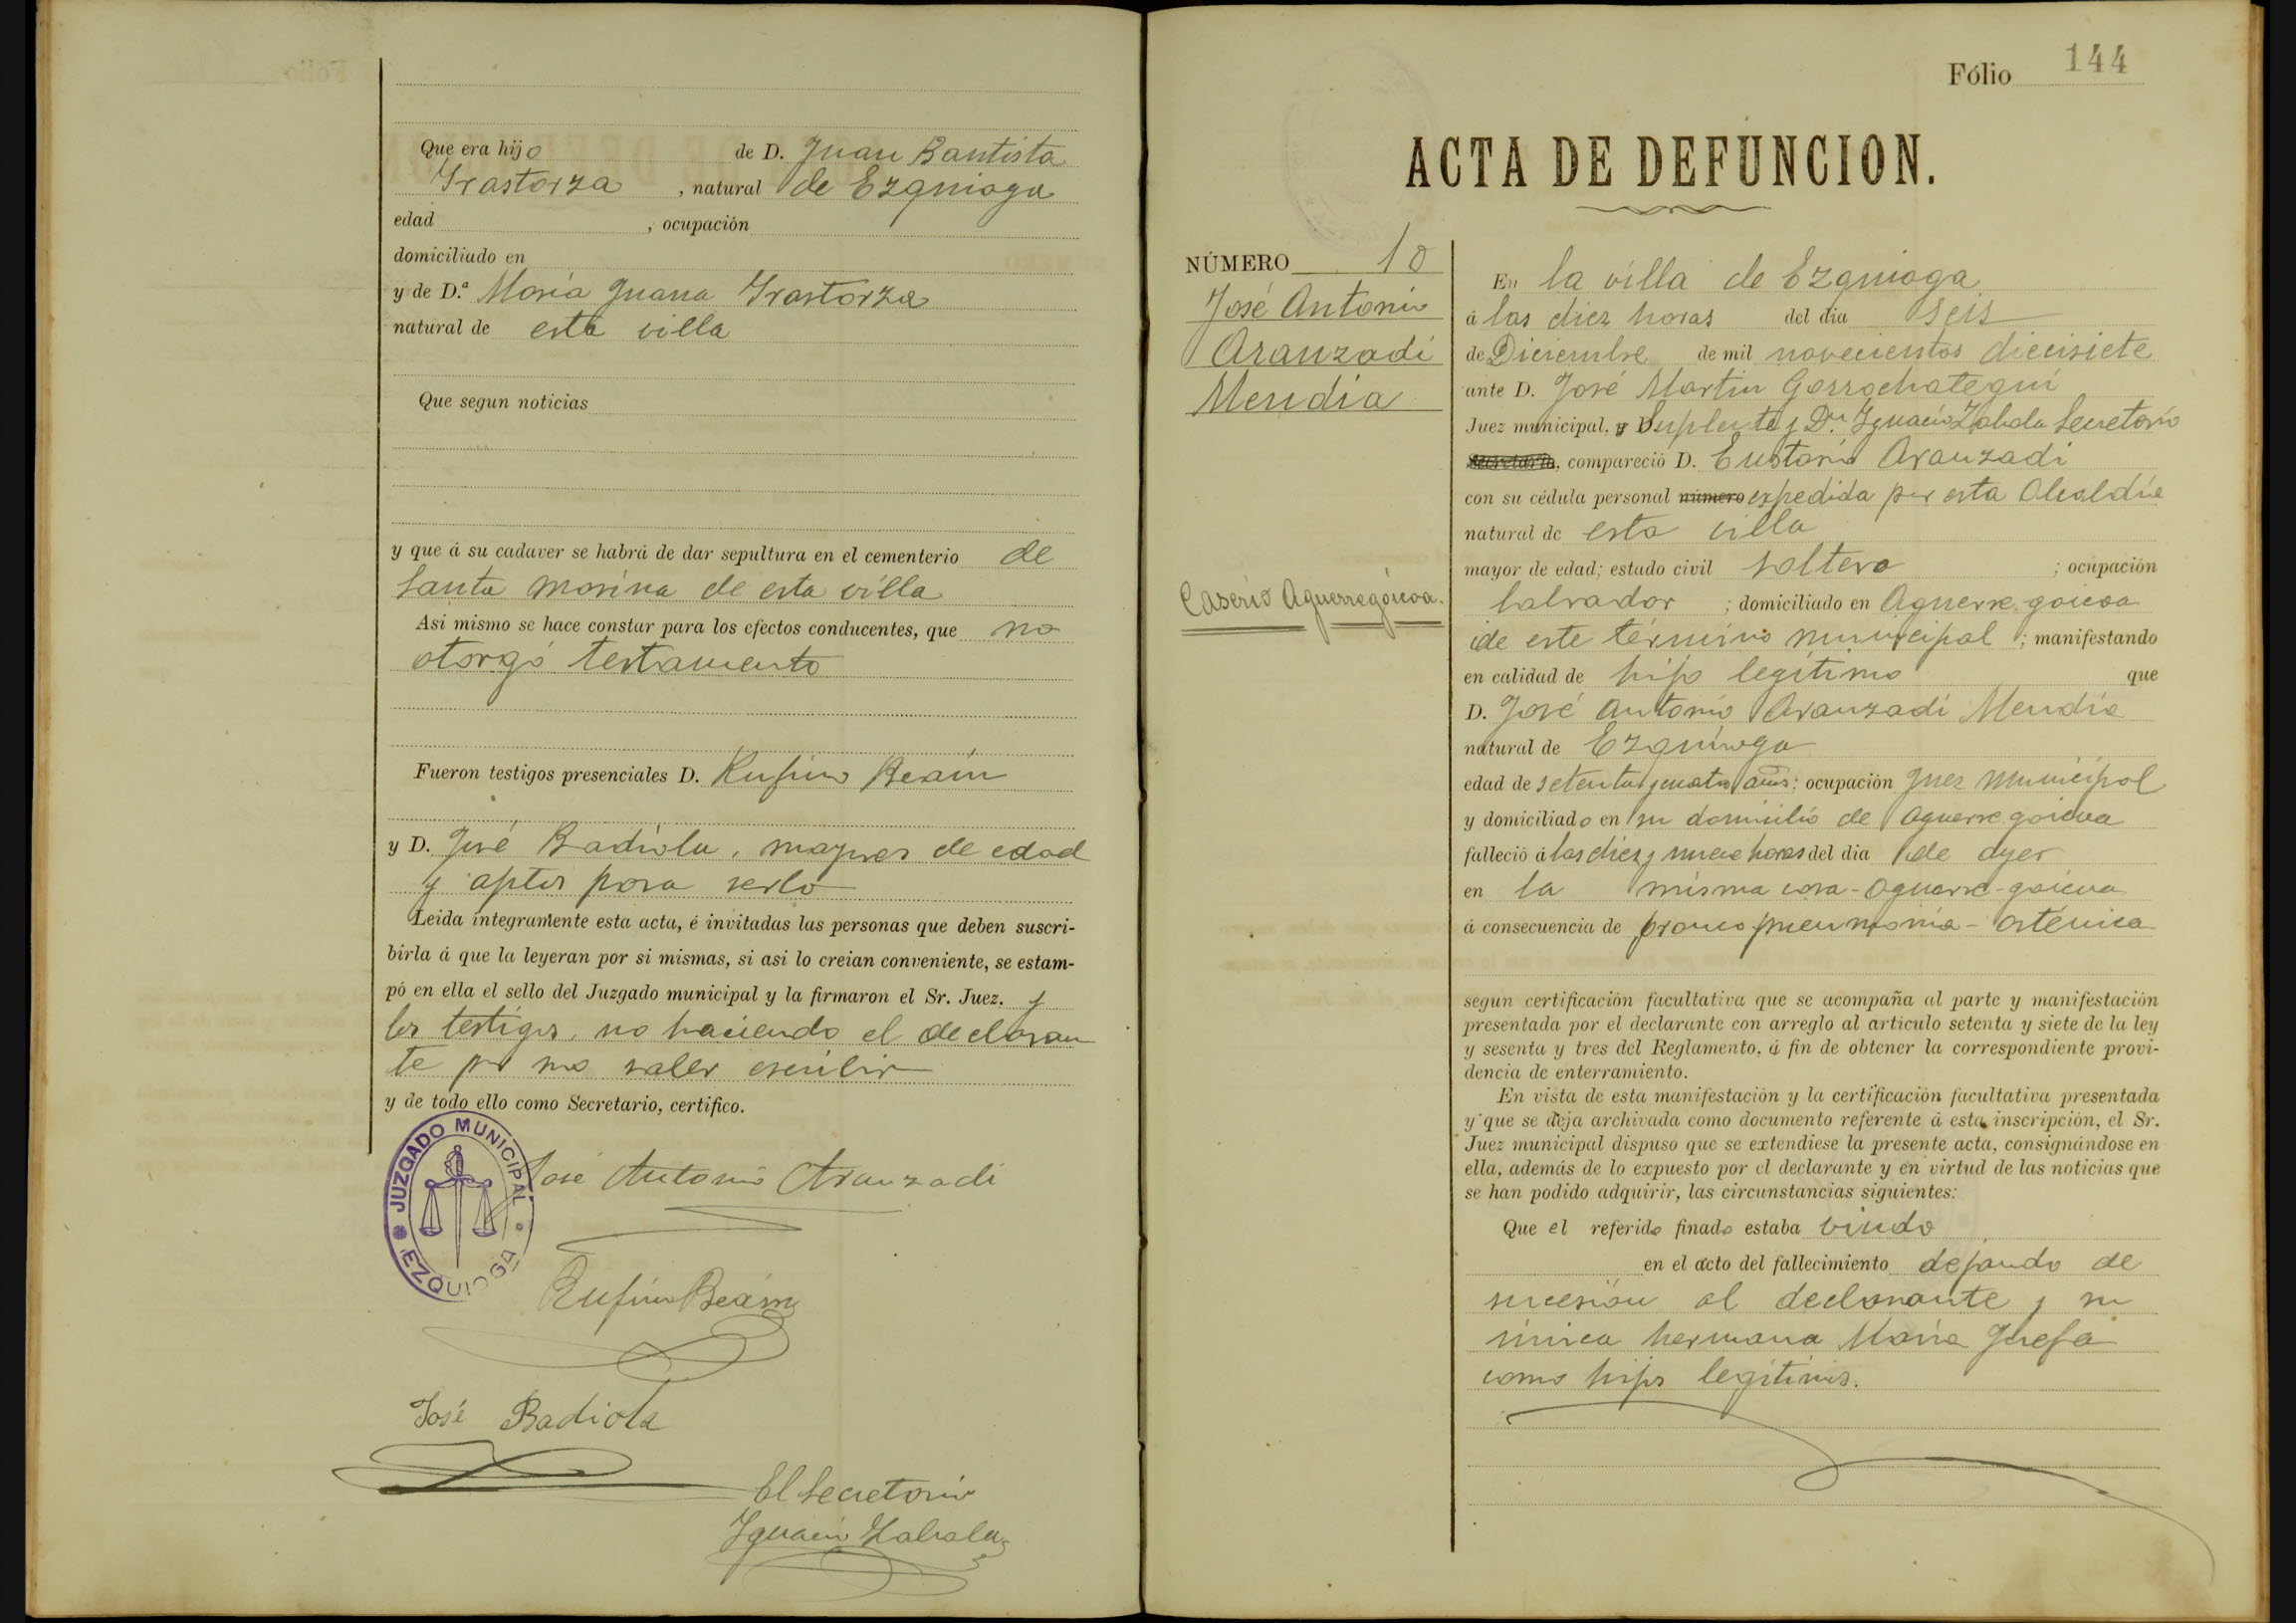 Que era hijo de D. Juan Bautista
Irastorza, natural de Ezquioga
edad , ocupación
domiciliado en
y de D.ª María Juana Irastorza
natural de esta villa
Que segun noticias
y que á su cadaver se habrá de dar sepultura en el cementerio de
Santa Marina de esta villa
Asi mismo se hace constar para los efectos conducentes, que no
otorgó testamento
Fueron testigos presenciales D. Rufino Beain
y D. José Badiola, mayores de edad
y aptos para serlo
Leida integramente esta acta, é invitadas las personas que deben suscri-
birla á que la leyeran por si mismas, si asi lo creian conveniente, se estam-
pó en ella el sello del Juzgado municipal y la firmaron el Sr. Juez. y
los testigos, no haciendo el declaran
te por no saber escribir
y de todo ello como Secretario, certifico.
JUZGADO MUNICIPAL
EZQUIOGA
José Antonio Aranzadi
Rufino Beain
José Badiola
El Secretario
Ignacio Zabala
Fólio 144
ACTA DE DEFUNCION.
NÚMERO 10
José Antonio
Aranzadi
Mendia
Caserio Aguerregoicoa.
En la villa de Ezquioga
á las diez horas del dia seis
de Diciembre de mil novecientos diecisiete
ante D. José Martin Gorrochategui
Juez municipal, y Suplente y Dn Ignacio Zabala Secretario
Secretario, compareció D. Eustario Aranzadi
con su cédula personal número expedida por esta Alcaldía
natural de esta villa
mayor de edad; estado civil soltero ; ocupación
labrador ; domiciliado en Aguerre goicoa
de este término municipal ; manifestando
en calidad de hijo legítimo que
D. José Antonio Aranzadi Mendia
natural de Ezquioga
edad de setenta y cuatro años; ocupación Juez Municipal
y domiciliado en su domicilio de Aguerre goicoa
falleció á las diez y nueve horas del dia de ayer
en la misma casa - Aguerre - goicoa
á consecuencia de bronco pneumonía - asténica
segun certificación facultativa que se acompaña al parte y manifestación
presentada por el declarante con arreglo al articulo setenta y siete de la ley
y sesenta y tres del Reglamento, á fin de obtener la correspondiente provi-
dencia de enterramiento.
En vista de esta manifestación y la certificación facultativa presentada
y que se deja archivada como documento referente á esta inscripción, el Sr.
Juez municipal dispuso que se extendiese la presente acta, consignándose en
ella, además de lo expuesto por el declarante y en virtud de las noticias que
se han podido adquirir, las circunstancias siguientes:
Que el referido finado estaba viudo
en el acto del fallecimiento dejando de
sucesión al declarante y su
única hermana María Josefa
como hijos legítimos.